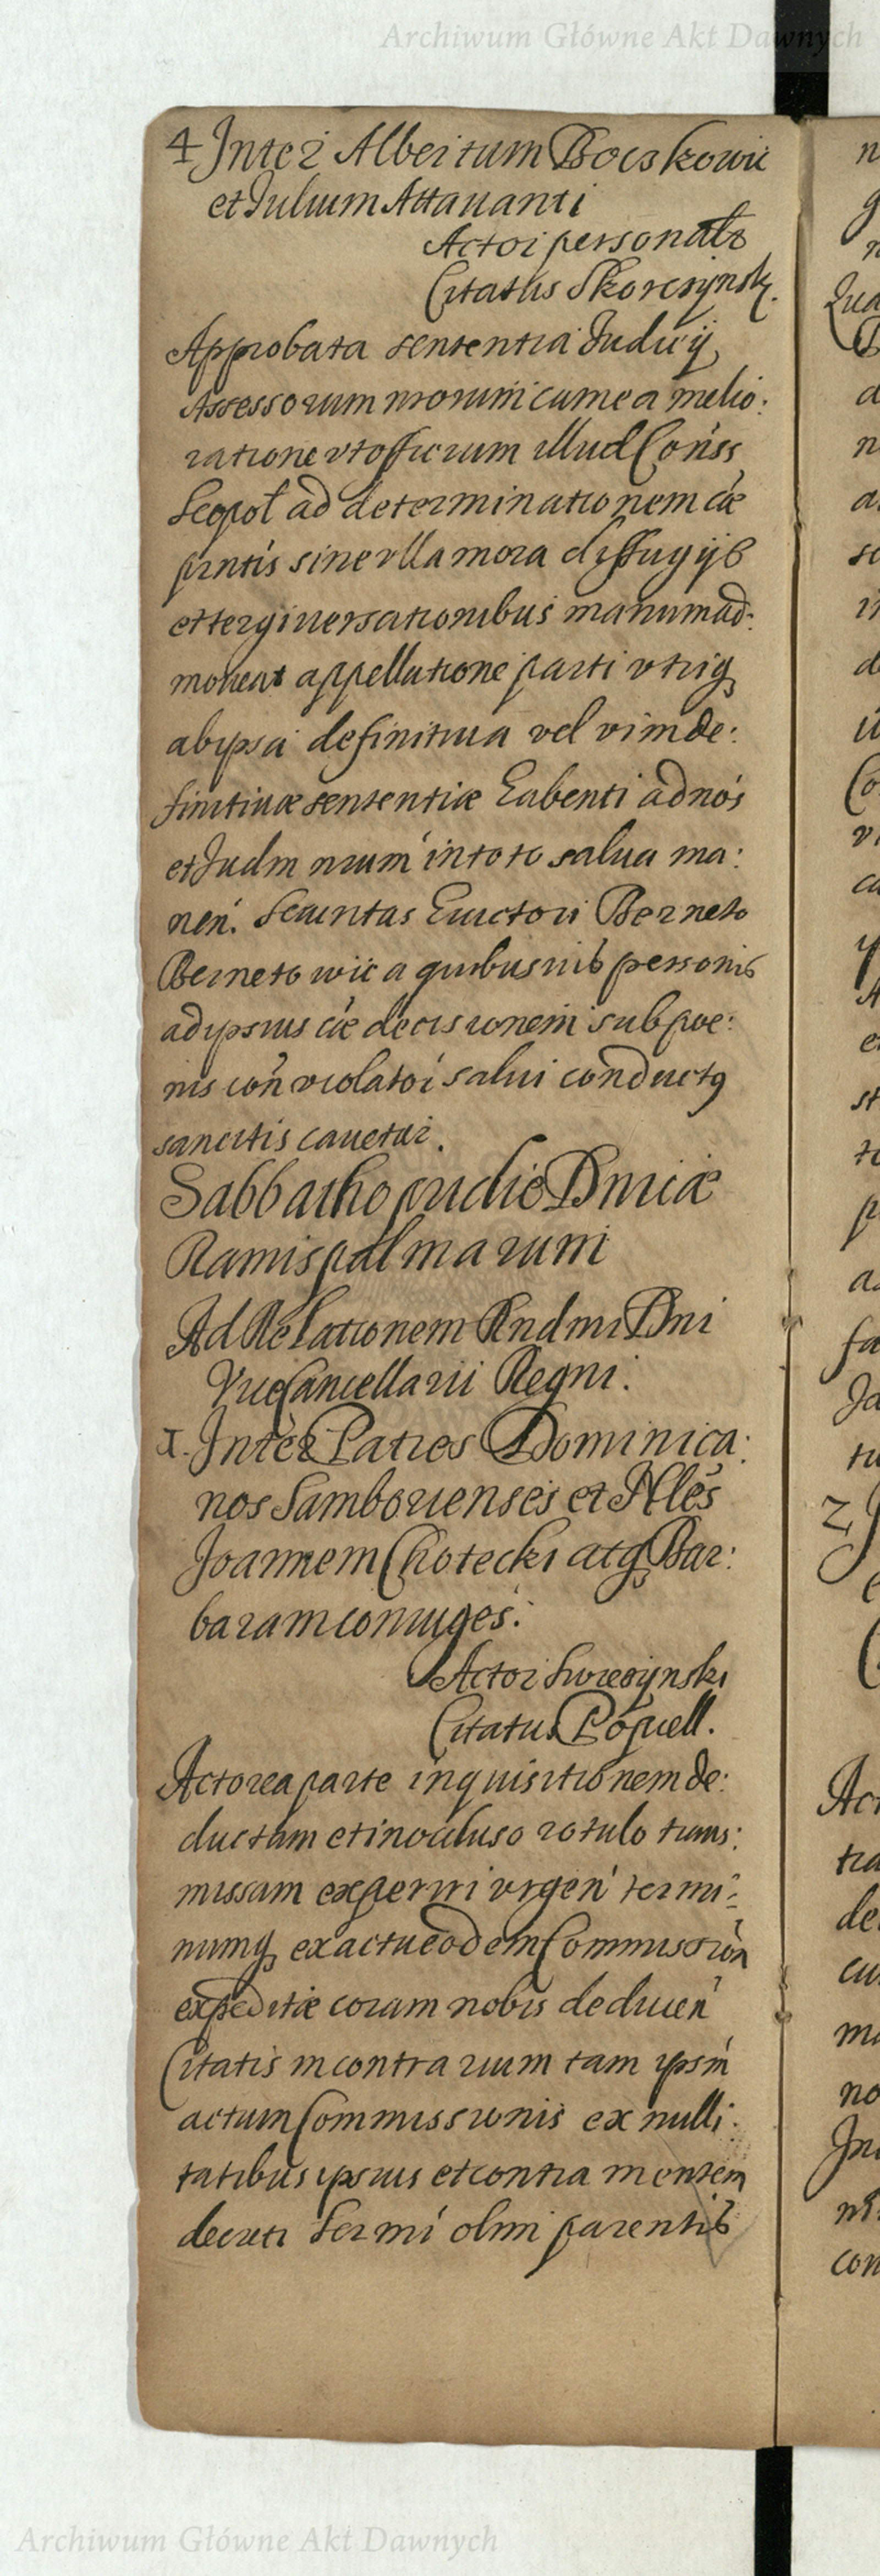 Archiwum Główne Akt Dawnych
4 Inter Albertum Bocskowic
et Julium Attavanti
Actor personalr
Citatus Skorczynsk.
Approbata sententia Judicij
Assessorum nrorum cum ea melio:
ratione vt officium illud Conss
Leopol ad determinationem cæ
pntis sine vlla mora diffugijs
et tergiuersationibus manum ad:
moueat appellatione parti vtriq
ab ipsa definitiua vel vim de:
finitiuæ sententiæ habenti ad nos
et Judm nrum in toto salua ma:
nen. Securitas Euictori Berneto
Bernetowic a quibusuis personis
ad ipsius cæ decisionem sub poe:
nis con violator salui conductq
sancitis cauetur.
Sabbatho pridie Dnicæ
Ramispalmarum
Ad Relationem Rndmi Dni
Vicecancellarii Regni.
I. Inter Patres Dominica:
nos Samborienses et Nlés
Joannem Chotecki atq Bar:
baram coniuges.
Actor Swiezynski
Citatus Popiell.
Actorea parte inquisitionem de:
ductam et in occluso rotulo trans:
missam experiri vrgen termi:
numq ex actu eodem Commission
expeditæ coram nobis deducen
Citatis in contrarium tam ipsm
actum Commissionis ex nulli:
tatibus ipsius et contra mentem
decreti Sermi olim parentis
Archiwum Główne Akt Dawnych